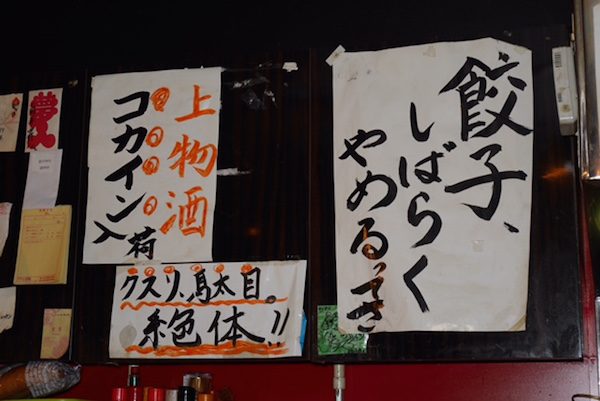 餃子、
しばらく
やめるってさ
上物酒
コカイン入荷
クスリ、馬太目。
絶体!!